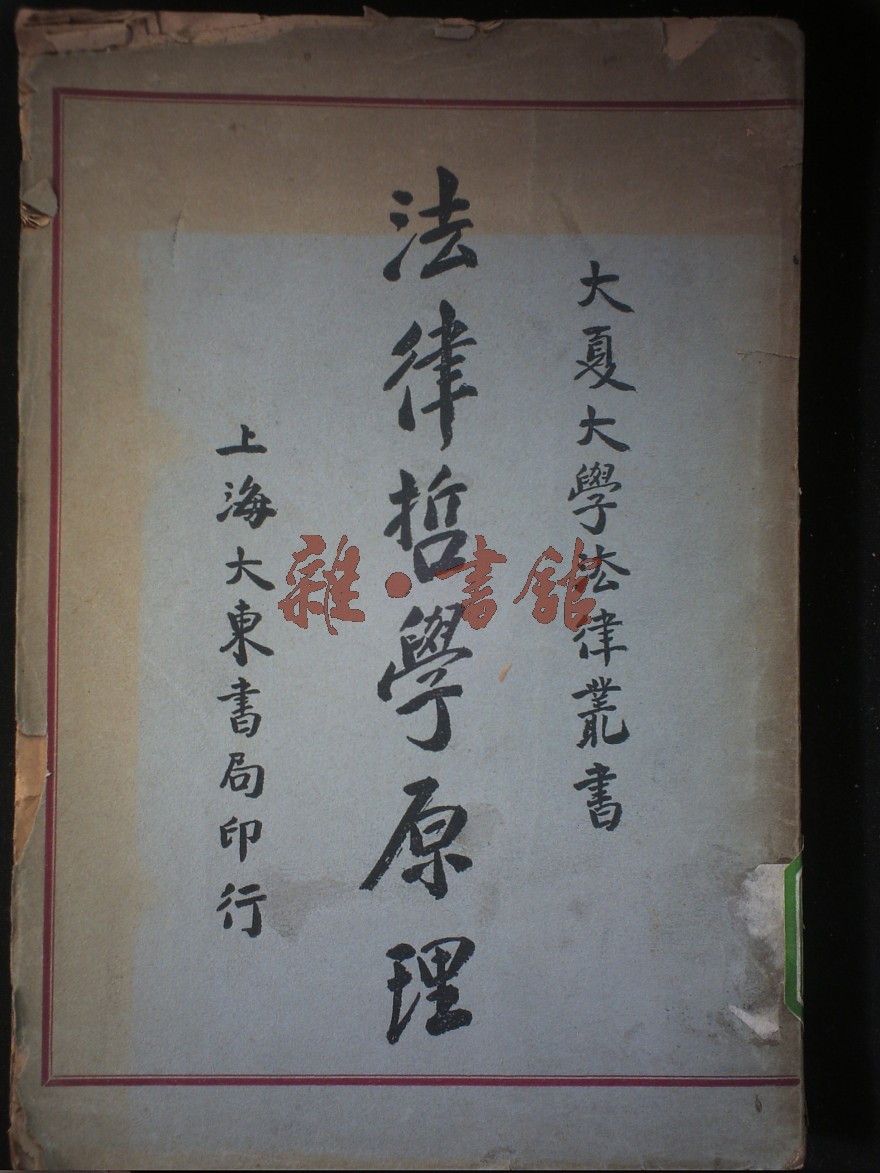 大夏大學法律叢書
法律哲學原理
上海大東書局印行
雜·書館